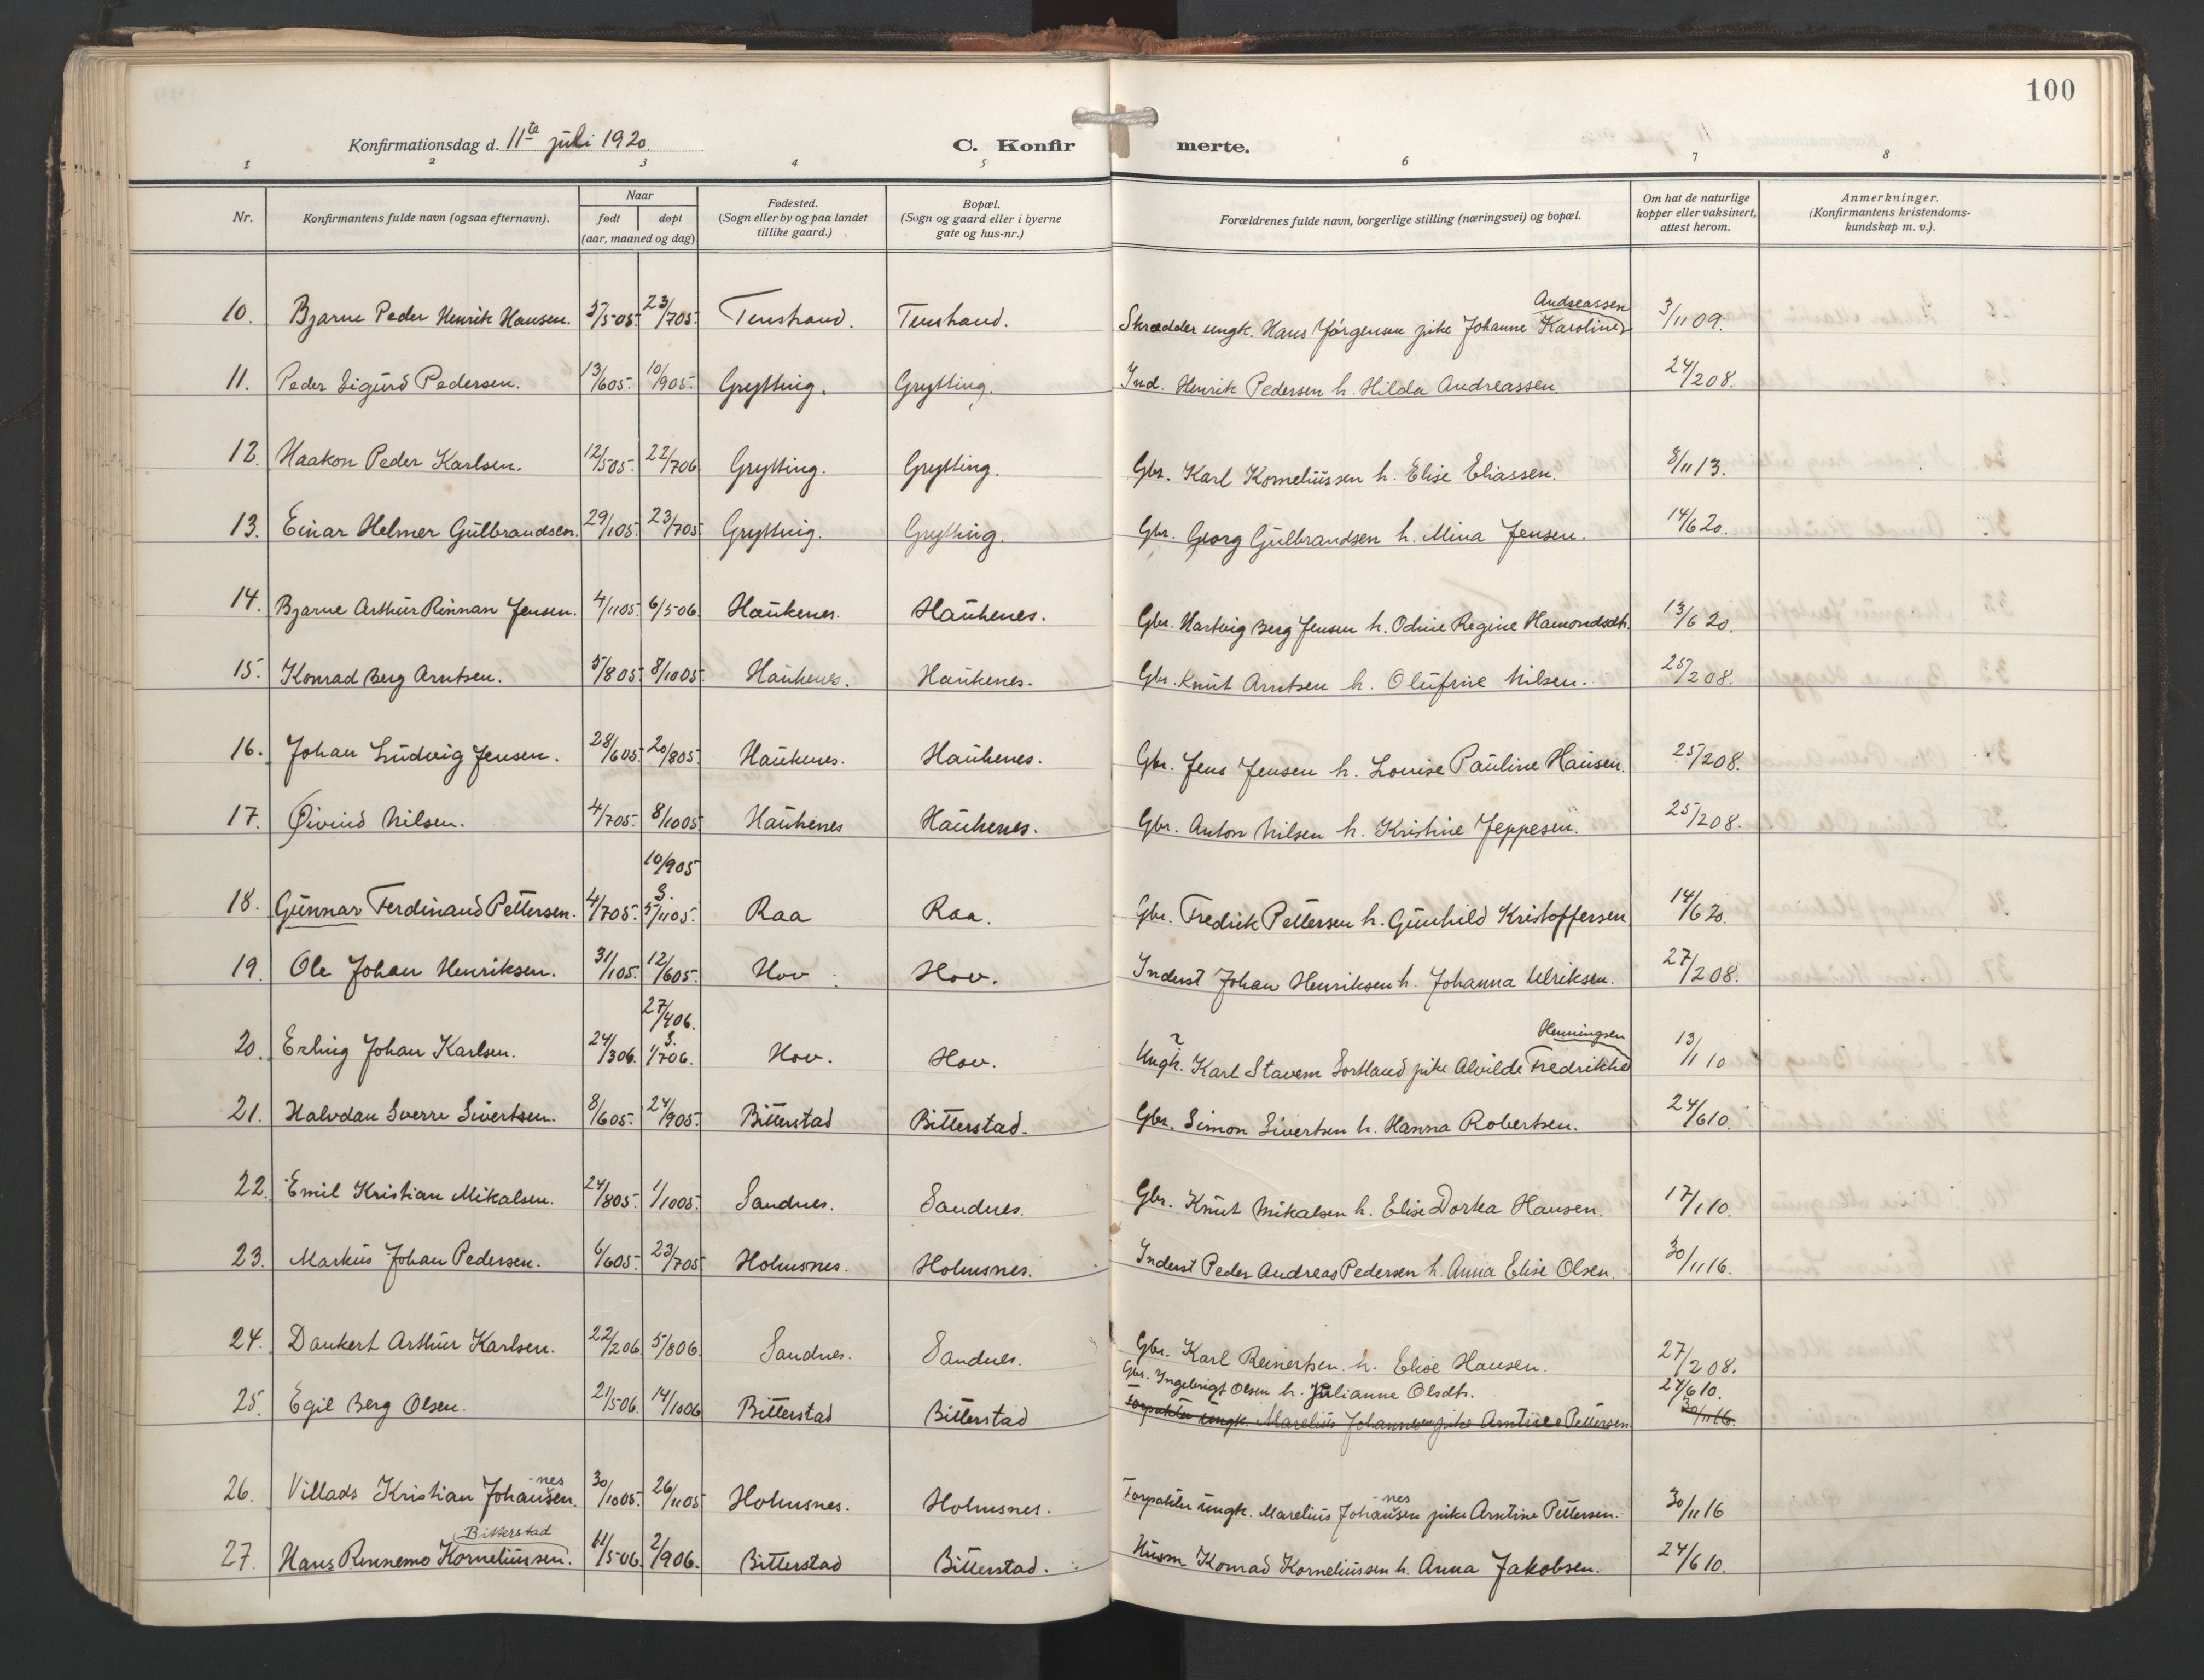 100
Konfirmationsdag d. 11te juli 1920.
C. Konfirmerte.
1 2 3 4 5 6 7 8
Nr. Konfirmantens fulde navn (ogsaa efternavn). Naar født døpt (aar, maaned og dag) Fødested. (Sogn eller by og paa landet tillike gaard.) Bopæl. (Sogn og gaard eller i byerne gate og hus-nr.) Forældrenes fulde navn, borgerlige stilling (næringsvei) og bopæl. Om hat de naturlige kopper eller vaksinert, attest herom. Anmerkninger. (Konfirmantens kristendoms-kundskap m. v.).
10. Bjarne Peder Henrik Hansen. 5/5 05. 23/7 05. Tenstrand. Tenstrand. Skrædder ungk. Hans Jörgensen pike Johanne Karoline Andreassen 3/11 09.
11. Peder Sigurd Pedersen. 13/6 05. 10/9 05. Grytting. Grytting. Ind. Henrik Pedersen h. Hilda Andreassen. 24/2 08.
12. Haakon Peder Karlsen. 12/5 05. 22/7 06. Grytting. Grytting. Gbr. Karl Korneliussen h. Elise Eliassen. 8/11 13.
13. Einar Helmer Gulbrandsen. 29/1 05. 23/7 05. Grytting. Grytting. Gbr. Georg Gulbrandsen h. Mina Jensen. 14/6 20.
14. Bjarne Arthur Rinnan Jensen. 4/11 05. 6/5 06. Haukenes. Haukenes. Gbr. Hartvig Berg Jensen h. Odine Regine Hamondsdtr. 13/6 20.
15. Konrad Berg Arntsen. 5/8 05. 8/10 05. Haukenes. Haukenes. Gbr. Knut Arntsen h. Olufine Nilsen. 25/2 08.
16. Johan Ludvig Jensen. 28/6 05. 20/8 05. Haukenes. Haukenes. Gbr. Jens Jensen h. Louise Pauline Hansen. 25/2 08.
17. Øivind Nilsen. 4/7 05. 8/10 05. Haukenes Haukenes. Gbr. Anton Nilsen h. Kristine Jeppesen. 25/2 08.
18. Gunnar Ferdinand Pettersen. 4/7 05. 10/9 05 S. 5/11 05. Raa Raa. Gbr. Fredrik Pettersen h. Gunhild Kristoffersen 14/6 20.
19. Ole Johan Henriksen. 31/1 05. 12/6 05. Hov. Hov. Inderst Johan Henriksen h. Johanna Ulriksen. 27/2 08.
20. Erling Johan Karlsen. 24/3 06. 27/4 06. S. 1/7 06. Hov. Hov. Ungk. ? Karl Stavem Sortland pike Alvilde Fredrikke Henningsen 13/11 10
21. Halvdan Sverre Sivertsen. 8/6 05. 24/9 05. Bitterstad Bitterstad. Gbr. Simon Sivertsen h. Hanna Robertsen. 24/6 10.
22. Emil Kristian Mikalsen. 24/8 05. 1/10 05. Sandnes. Sandnes. Gbr. Knut Mikalsen h. Elise Dortea Hansen. 17/1 10.
23. Markus Johan Pedersen. 6/6 05. 23/7 05 Holmsnes. Holmsnes. Inderst Peder Andreas Pedersen h. Anna Elise Olsen. 30/11 16.
24. Dankert Arthur Karlsen. 22/2 06. 5/8 06. Sandnes. Sandnes. Gbr. Karl Reinertsen h. Elise Hansen. 27/2 08.
25. Egil Berg Olsen. 21/5 06. 14/10 06 Bitterstad Bitterstad Gbr. Ingebrigt Olsen h. Julianne Olsdtr. 24/6 10.
Torpakter ungk. Marelius Johannesen pike Arntine Pettersen. 30/11 16.
26. Villads Kristian Johansen. -nes 30/10 05. 26/11 05 Holmsnes. Holmsnes. Torpakter ungk. Marelius Johansen -nes pike Arntine Pettersen. 30/11 16
27. Hans Rennemo Korneliussen. Bitterstad 11/5 06. 2/9 06. Bitterstad Bitterstad. Husm Konrad Korneliussen h. Anna Jakobsen. 24/6 10.